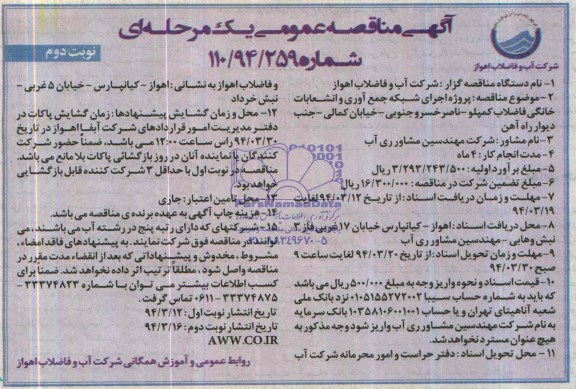 آگهی مناقصه عمومی یک مرحله‌ای
شماره ۱۱۰/۹۴/۲۵۹
نوبت دوم
شرکت آب و فاضلاب اهواز
۱- نام دستگاه مناقصه گزار : شرکت آب و فاضلاب اهواز
۲- موضوع مناقصه : پروژه اجرای شبکه جمع آوری و انشعابات
خانگی فاضلاب کمپلو - ناصر خسرو جنوبی - خیابان کمالی - جنب
دیوار راه آهن
۳- نام مشاور : شرکت مهندسین مشاور ری آب
۴- مدت انجام کار : ۴ ماه
۵- مبلغ برآورد اولیه : ۳/۲۹۳/۲۴۳/۵۰۰ ریال
۶- مبلغ تضمین شرکت در مناقصه : ۱۶/۳۰۰/۰۰۰ ریال
۷- مهلت و زمان دریافت اسناد : از تاریخ ۹۴/۰۳/۱۲ لغایت
۹۴/۰۳/۱۹
۸- محل دریافت اسناد : اهواز - کیانپارس خیابان ۱۷ غربی فاز ۳
نبش وهابی - مهندسین مشاور ری آب
۹- مهلت و زمان تحویل اسناد : از تاریخ ۹۴/۰۳/۲۰ لغایت ساعت ۹
صبح ۹۴/۰۳/۳۰
۱۰- قیمت اسناد و نحوه واریز وجه به مبلغ ۵۰۰/۰۰۰ ریال می باشد
که باید به شماره حساب سیبا ۰۱۰۵۱۵۵۲۷۲۰۰۲ نزد بانک ملی
شعبه آناهیتای تهران و یا حساب ۱۰۳۵۸۱۰۶۰۰۱۰۰۱ بانک سرمایه
به نام شرکت مهندسین مشاور ری آب واریز شود وجه مذکور به
هیچ عنوان مسترد نخواهد شد.
۱۱- محل تحویل اسناد : دفتر حراست و امور محرمانه شرکت آب
و فاضلاب اهواز به نشانی : اهواز - کیانپارس - خیابان ۵ غربی -
نبش خرداد
۱۲- محل و زمان گشایش پیشنهادها : زمان گشایش پاکات در
دفتر مدیریت امور قراردادهای شرکت آبفا اهواز در تاریخ
۹۴/۰۳/۳۰ راس ساعت ۱۲:۰۰ می باشد، ضمنا حضور شرکت
کنندگان یا نماینده آنان در روز بازگشائی پاکات بلامانع می باشد.
مناقصه در نوبت اول با حداقل ۳ شرکت کننده قابل بازگشایی
خواهد بود.
۱۳- محل تامین اعتبار : جاری
۱۴- هزینه چاپ آگهی به عهده برنده ی مناقصه می باشد.
۱۵- شرکتهای که دارای رتبه پنج در رشته آب می باشند، می
توانند در مناقصه فوق شرکت نمایند. به پیشنهادهای فاقد امضاء،
مشروط، مخدوش و پیشنهاداتی که بعد از انقضاء مدت مقرر در
مناقصه واصل شود، مطلقا ترتیب اثر داده نخواهد شد. ضمنا برای
کسب اطلاعات بیشتر می توان با شماره ۳۳۳۷۴۸۲۳ -
۳۳۳۷۴۸۷۵ -۰۶۱۱ تماس گرفت.
تاریخ انتشار نوبت اول : ۹۴/۳/۱۲
تاریخ انتشار نوبت دوم : ۹۴/۳/۱۶
AWW.CO.IR
روابط عمومی و آموزش همگانی شرکت آب و فاضلاب اهواز
ParsNamadData